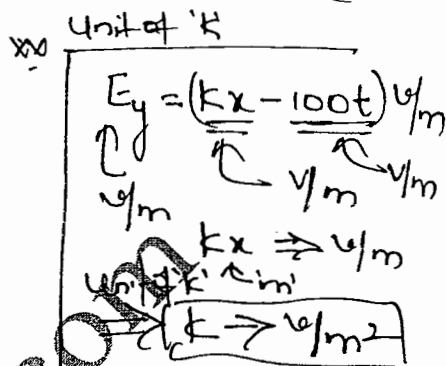 unit of 'K'
Ey = (Kx - 100t) V/m
V/m V/m
V/m
Kx ⇒ V/m
unit of 'K' 'm'
K → V/m²